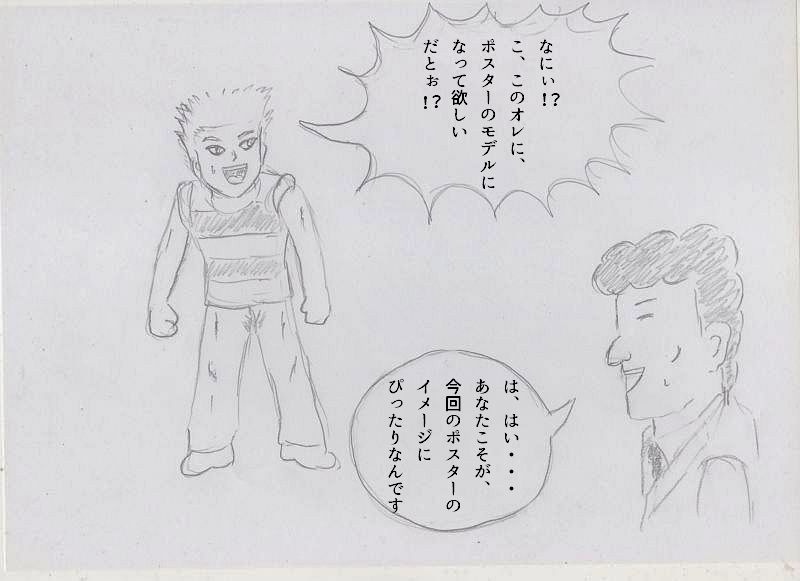 なにぃ!?
こ、このオレに、
ポスターのモデルに
なって欲しい
だとぉ!?
は、はい・・・
あなたこそが、
今回のポスターの
イメージに
ぴったりなんです